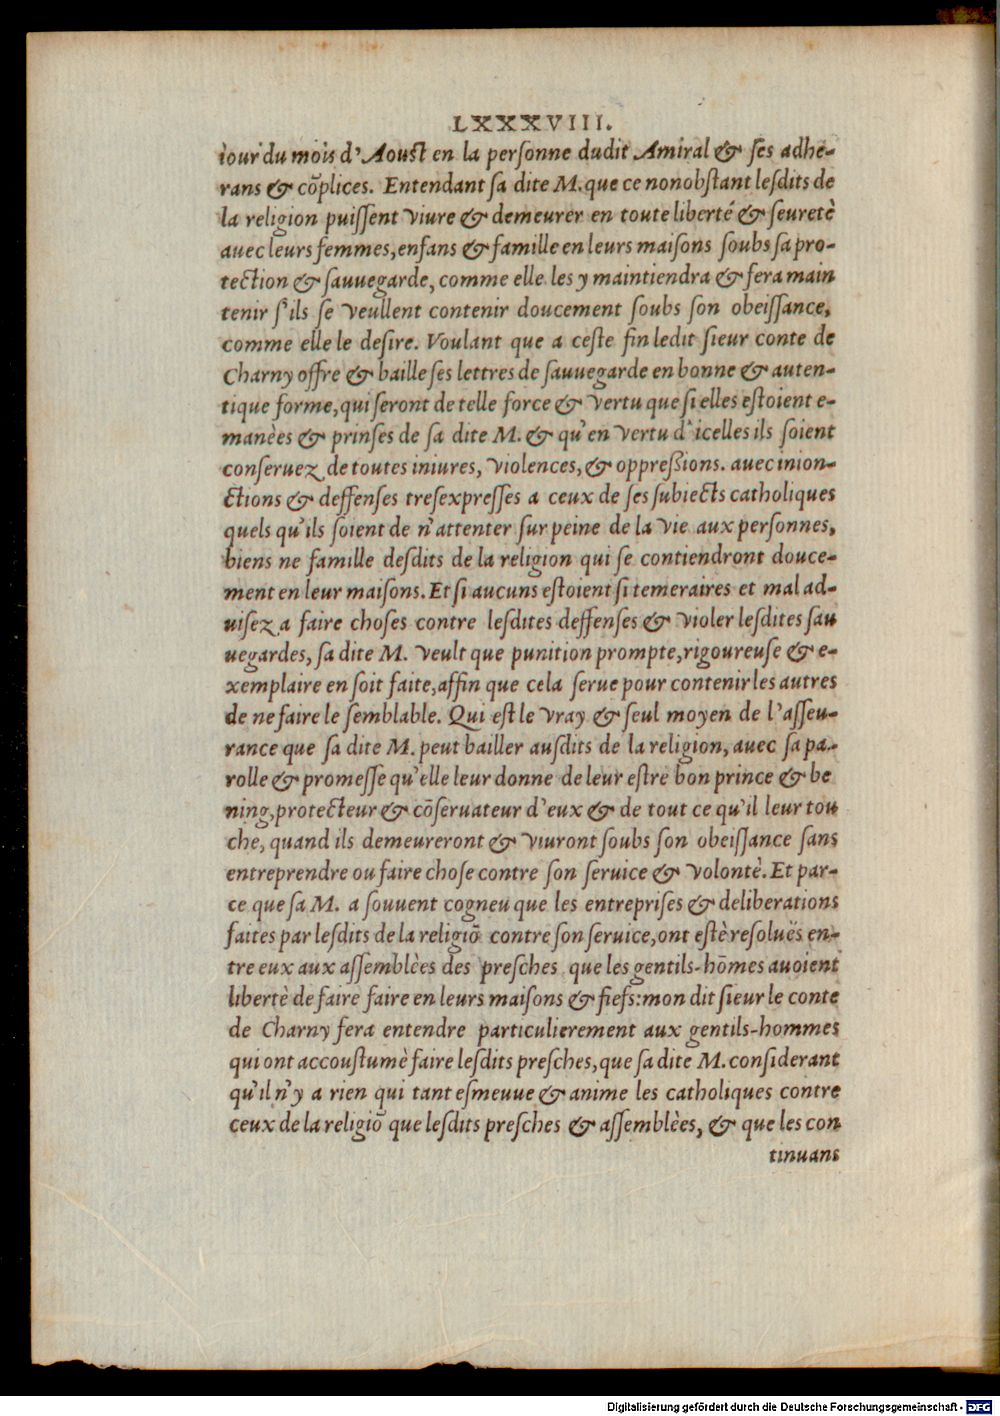 LXXXVIII.
iour du mois d'Aoust en la personne dudit Amiral & ses adhe-
rans & cõplices. Entendant sa dite M. que ce nonobstant lesdits de
la religion puissent viure & demeurer en toute liberté & seuretè
auec leurs femmes, enfans & famille en leurs maisons soubs sa pro-
tection & sauuegarde, comme elle les y maintiendra & fera main
tenir s'ils se veullent contenir doucement soubs son obeissance,
comme elle le desire. Voulant que a ceste fin ledit sieur conte de
Charny offre & baille ses lettres de sauuegarde en bonne & auten-
tique forme, qui seront de telle force & vertu que si elles estoient e-
manèes & prinses de sa dite M. & qu'en vertu d'icelles ils soient
conseruez de toutes iniures, violences, & oppreßions. auec inion-
ctions & deffenses tresexpresses a ceux de ses subiects catholiques
quels qu'ils soient de n'attenter sur peine de la vie aux personnes,
biens ne famille desdits de la religion qui se contiendront douce-
ment en leur maisons. Et si aucuns estoient si temeraires et mal ad-
uisez a faire choses contre lesdites deffenses & violer lesdites sau
uegardes, sa dite M. veult que punition prompte, rigoureuse & e-
xemplaire en soit faite, affin que cela serue pour contenir les autres
de ne faire le semblable. Qui est le vray & seul moyen de l'asseu-
rance que sa dite M. peut bailler ausdits de la religion, auec sa pa-
rolle & promesse qu'elle leur donne de leur estre bon prince & be
ning, protecteur & cõseruateur d'eux & de tout ce qu'il leur tou
che, quand ils demeureront & viuront soubs son obeissance sans
entreprendre ou faire chose contre son seruice & volontè. Et par-
ce que sa M. a souuent cogneu que les entreprises & deliberations
faites par lesdits de la religiõ contre son seruice, ont estè resoluës en-
tre eux aux assemblèes des presches que les gentils-hõmes auoient
libertè de faire faire en leurs maisons & fiefs: mon dit sieur le conte
de Charny fera entendre particulierement aux gentils-hommes
qui ont accoustumè faire lesdits presches, que sa dite M. considerant
qu'il n'y a rien qui tant esmeuue & anime les catholiques contre
ceux de la religiõ que lesdits presches & assemblèes, & que les con
tinuans
Digitalisierung gefördert durch die Deutsche Forschungsgemeinschaft - DFG